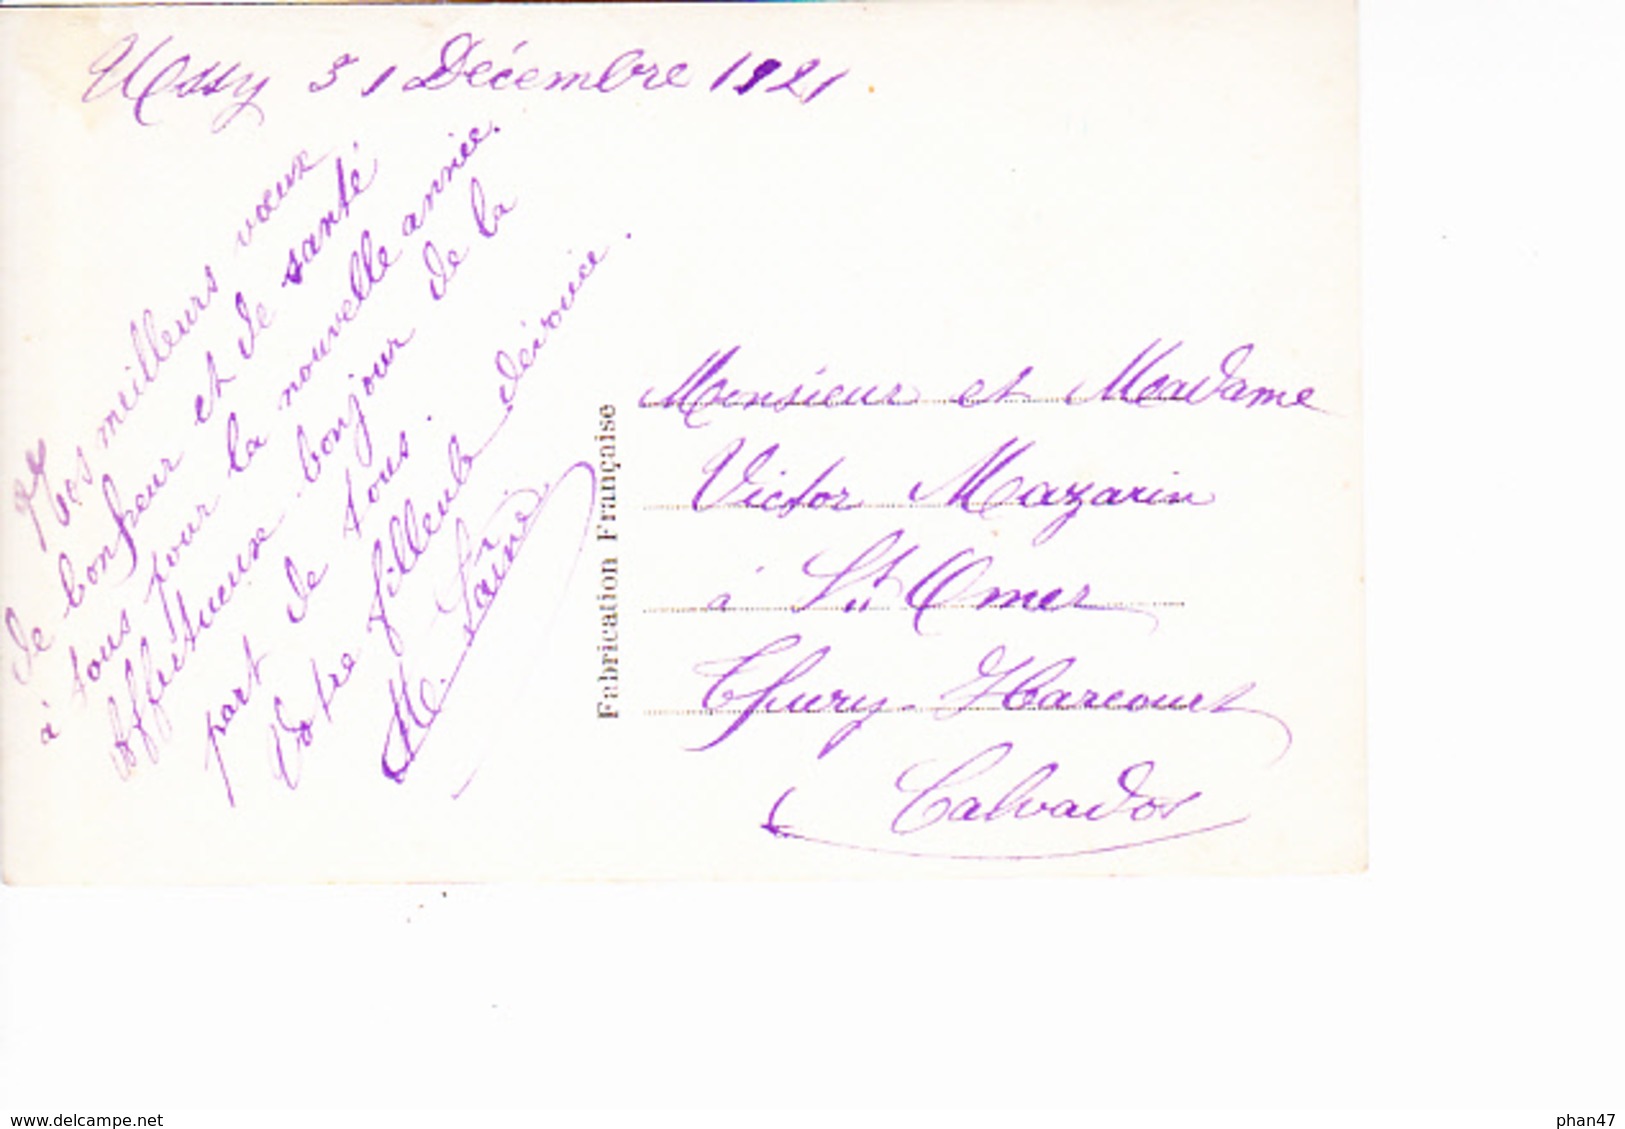 Ussy 31 Décembre 1921
Mes meilleurs vœux
de bonheur et de santé
à tous pour la nouvelle année.
Affectueux bonjour de la
part de tous.
Votre filleule dévouée.
Fabrication Française
Monsieur et Madame
Victor Mazarin
à St Omer
Thury-Harcourt
Calvados
www.delcampe.net
phan47